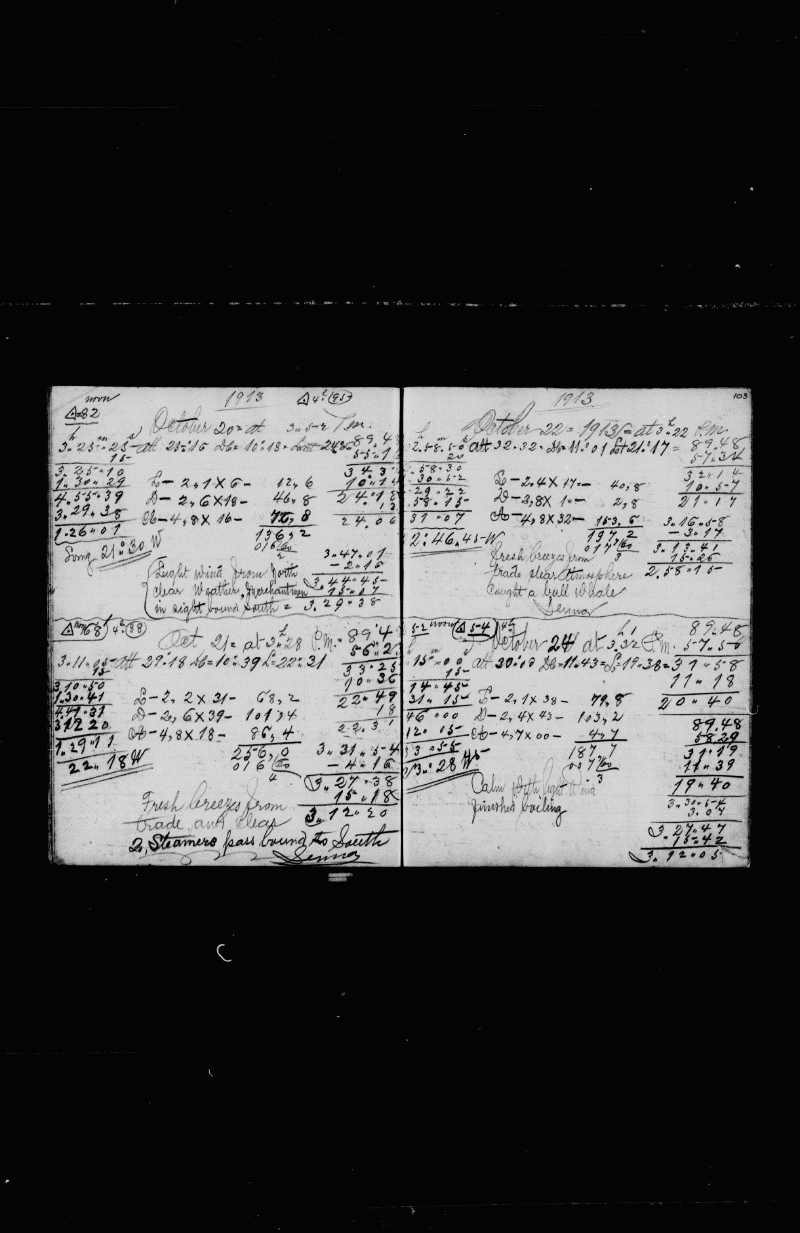 1913
mon
82
4.h 95
October 20= at 3.52 P.m.
3h.25m.25s att 21=16 Db= 10=18= 89.48
15
3.25.10
1.30.29
4.55.39
3.29.38
1.26.01
Long 21=30 W
L- 2,1X6- 12,6
D- 2,6X18- 46,8
A- 4,8X16- 76,8
136,2
016/60
2
10.1
24.06
3.47.01
-2.16
3.44.45
15.07
3.29.38
Light wind from North
clear Weather, Merchantmen
in sight bound South =
68 4.h 38
Oct 21= at 3.h28 P.M.
att 29=18 Db=10=39 L=22=31
15
3.10.50
1.30.41
4.41.31
3.12.20
1.29.11
22.18W
L- 2,2X31- 68,2
D- 2,6X39- 101,4
A- 4,8X18- 86,4
256,0
016/60
4
33.25
10.36
22.49
18
22.31
3.31.54
-4.16
3.27.38
15.18
3.12.20
Fresh breezes from
trade and Clear
2, Steamers pass bound to South
Senna
1913
103
October 22= 1913/= at 3.h22 P.M.
2.58.50 att 32.32= Db 11=01 Lat 21=17= 89.48
20
57.34
.58.30
30.52
58.15
31.07
2=46.45 W
L- 2.4X17- 40,8
D- 2,8X1- 2,8
A- 4,8X32- 153.6
197,2
017/60
3
32.14
10.57
21.17
3.16.58
-3.17
3.13.41
15.26
2,58.15
Fresh breezes from
trade clear atmosphere
Caught a bull Whale
Senna
52 moon 54
October 24 at 3.32 P.M.
89.48
57.50
15.00 at 30=10 Db=11=43= L=19=38= 31.58
15
14.45
31.15
46.00
12.15
33.55
L- 2,1X38- 79,8
D- 2,4X43- 103,2
A- 4,7X00- 4,7
187,7
007/60
3
11.18
20.40
89.48
58.29
31.19
11.39
19.40
3.30.54
3.07
3.27.47
15.42
3.12.05
Calm With light Wind
finished boiling